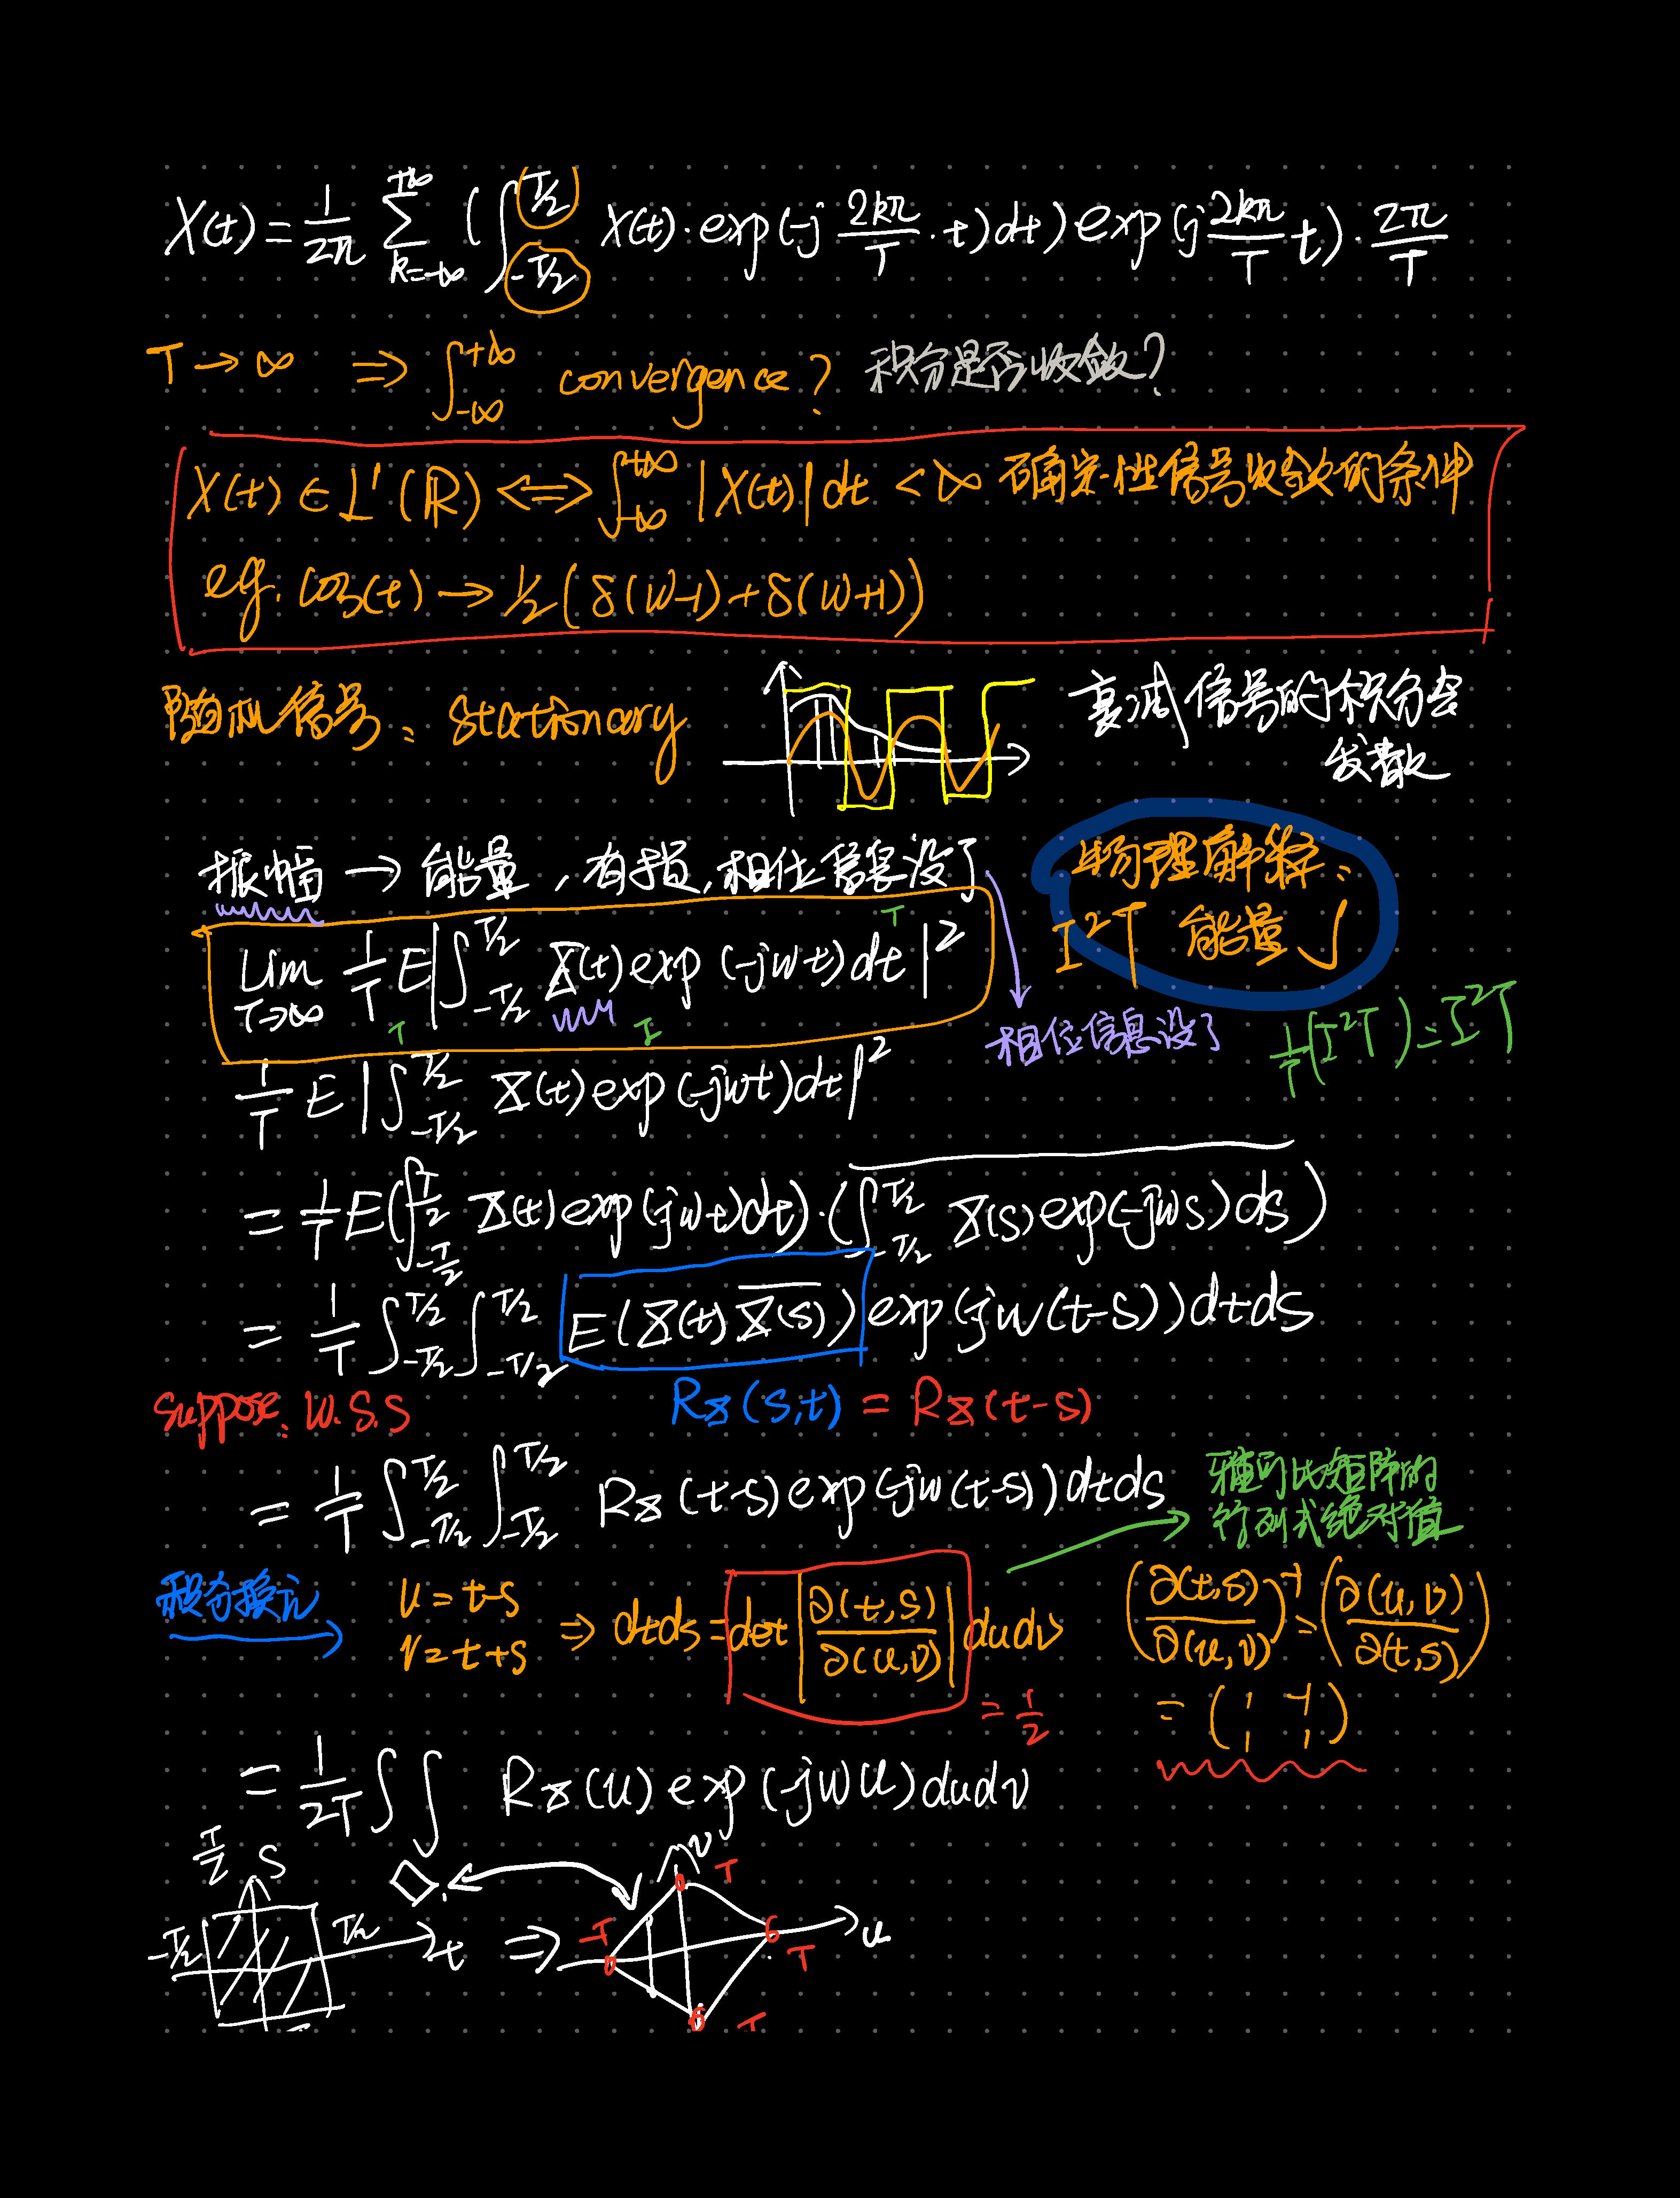 X(t) = 1/2π ∑_{k=-∞}^{+∞} (∫_{-T/2}^{T/2} X(t)·exp(-j 2kπ/T ·t)dt) exp(j 2kπ/T t)· 2π/T
T→∞ ⇒ ∫_{-∞}^{+∞} convergence? 积分是否收敛?
X(t)∈L¹(ℝ) ⟺ ∫_{-∞}^{+∞} |X(t)|dt <∞ 确定性信号收敛的条件
eg. cos(t) → 1/2(δ(w-1)+δ(w+1))
随机信号: stationary
衰减信号的积分会
发散
振幅 → 能量, 有损, 相位信息没了
物理解释:
I²T 能量 J
Lim_{T→∞} 1/T E|∫_{-T/2}^{T/2} X(t)exp(-jwt)dt|²
T
T
I
相位信息没了
1/T(I²T)=I²T
1/T E|∫_{-T/2}^{T/2} X(t)exp(-jwt)dt|²
= 1/T E(∫_{-T/2}^{T/2} X(t)exp(-jwt)dt)·(∫_{-T/2}^{T/2} X(s)exp(-jws)ds)
= 1/T ∫_{-T/2}^{T/2} ∫_{-T/2}^{T/2} E(X(t)X̅(s)) exp(-jw(t-s))dtds
suppose: W.S.S
R_X(s,t) = R_X(t-s)
= 1/T ∫_{-T/2}^{T/2} ∫_{-T/2}^{T/2} R_X(t-s)exp(-jw(t-s))dtds
雅可比矩阵的
行列式绝对值
积分换元
u=t-s
v=t+s
⇒ dtds = det|∂(t,s)/∂(u,v)| dudv
= 1/2
(∂(t,s)/∂(u,v))⁻¹ = (∂(u,v)/∂(t,s))
= (1 -1
1 1)
= 1/2T ∫∫ R_X(u) exp(-jwu)dudv
T/2 S
-T/2 T/2 t ⇒
v T
-T T u
-T